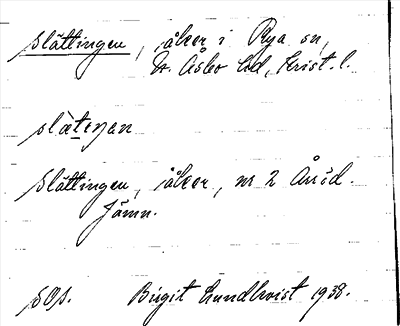 Slättingen, åker i Rya sn,
N. Åsbo hd, Krist. l.
slæteŋan
Slättingen, åker, nr 2
Jämn.
SOs. Birgit Lundkvist 1938.